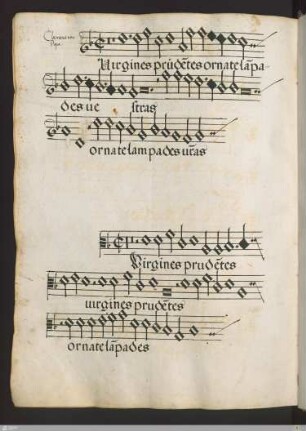 Clemens non
Papa
Virgines prudētes ornate lāpa-
des ve stras
ornate lampades vr̄as
Virgines prudētes
virgines prudētes
ornate lāpades